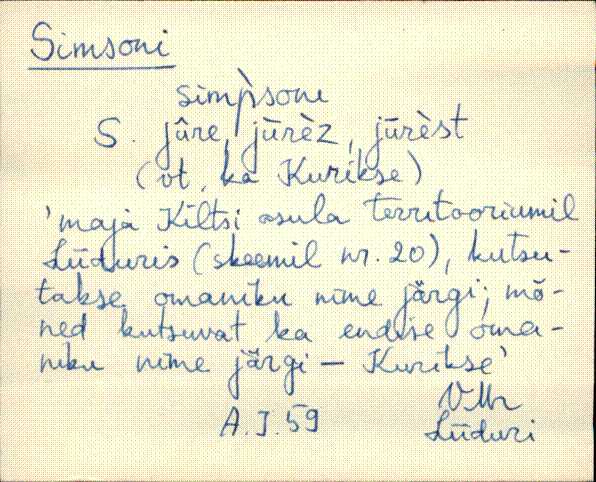 Simsoni
simp̀soni
S. jûre, jūrèz, jūrèst
(vt. ka Kurikse)
'maja Kiltsi asula territooriumil
Lüduris (skeemil nr. 20), kutsu-
takse omaniku nime järgi; mõ-
ned kutsuvat ka endise oma-
niku nime järgi – Kurikse'
A.J.59
VMr
Lüduri